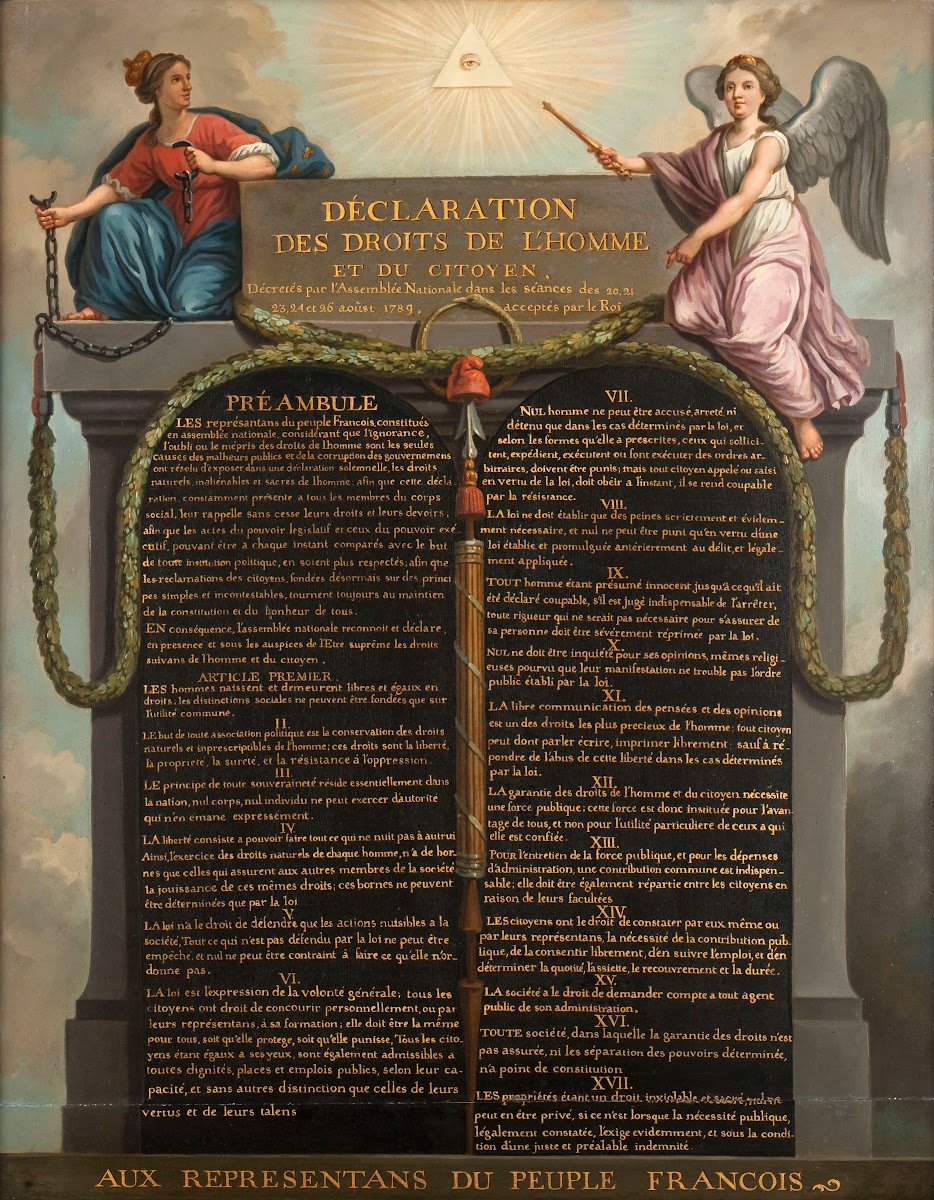 DÉCLARATION
DES DROITS DE L'HOMME
ET DU CITOYEN,
Décretés par l'Assemblée Nationale dans les séances des 20, 21
23, 24 et 26 aoûst 1789, acceptés par le Roi
PRÉAMBULE
LES représantans du peuple Francois, constitués
en assemblée nationale, considérant que l'ignorance,
l'oubli ou le mépris des droits de l'homme sont les seules
causes des malheurs publics et de la corruption des gouvernemens
ont résolu d'exposer dans une déclaration solemnelle, les droits
naturels, inaliénables et sacrés de l'homme; afin que cette décla-
ration, constamment présente a tous les membres du corps
social, leur rappelle sans cesse leurs droits et leurs devoirs;
afin que les actes du pouvoir legislatif et ceux du pouvoir exé-
cutif, pouvant être à chaque instant comparés avec le but
de toute institution politique, en soient plus respectés; afin que
les reclamations des citoyens, fondées désormais sur des princi-
pes simples et incontestables, tournent toujours au maintien
de la constitution et du bonheur de tous.
EN conséquence, l'assemblée nationale reconnoit et déclare,
en presence et sous les auspices de l'Etre suprême les droits
suivans de l'homme et du citoyen.
ARTICLE PREMIER.
LES hommes naissent et demeurent libres et égaux en
droits; les distinctions sociales ne peuvent être fondées que sur
l'utilité commune.
II.
LE but de toute association politique est la conservation des droits
naturels et inprescriptibles de l'homme; ces droits sont la liberté,
la propriete, la sureté, et la résistance à l'oppression.
III.
LE principe de toute souveraineté réside essentiellement dans
la nation, nul corps, nul individu ne peut exercer d'autorité
qui n'en emane expressement.
IV.
LA liberté consiste a pouvoir faire tout ce qui ne nuit pas à autrui
Ainsi, l'exercice des droits naturels de chaque homme, n'a de bor-
nes que celles qui assurent aux autres membres de la société
la jouissance de ces mêmes droits; ces bornes ne peuvent
être déterminées que par la loi
V.
LA loi n'a le droit de défendre que les actions nuisibles a la
société, Tout ce qui n'est pas défendu par la loi ne peut être
empêché, et nul ne peut être contraint à faire ce qu'elle n'or-
donne pas.
VI.
LA loi est l'expression de la volonté générale; tous les
citoyens ont droit de concourir personnellement, ou par
leurs représentans, à sa formation; elle doit être la même
pour tous, soit qu'elle protege, soit qu'elle punisse, Tous les cito-
yens étant égaux a ses yeux, sont également admissibles a
toutes dignités, places et emplois publics, selon leur ca-
pacité, et sans autres distinction que celles de leurs
vertus et de leurs talens
VII.
NUL homme ne peut être accusé, arreté ni
détenu que dans les cas déterminés par la loi, et
selon les formes qu'elle a prescrites, ceux qui sollici-
tent, expédient, exécutent ou font exécuter des ordres ar-
bitraires, doivent être punis; mais tout citoyen appelé ou saisi
en vertu de la loi, doit obéir a l'instant, il se rend coupable
par la résistance.
VIII.
LA loi ne doit établir que des peines strictement et évidem-
ment nécessaire, et nul ne peut être puni qu'en vertu d'une
loi établie et promulguée antérierement au délit, et légale-
ment appliquée.
IX.
TOUT homme étant présumé innocent jusqu'a ce qu'il ait
été déclaré coupable, s'il est jugé indispensable de l'arrêter,
toute rigueur qui ne serait pas nécessaire pour s'assurer de
sa personne doit être sévérement réprimée par la loi.
X.
NUL ne doit être inquiété pour ses opinions, mêmes religi-
euses pourvu que leur manifestation ne trouble pas l'ordre
public établi par la loi.
XI.
LA libre communication des pensées et des opinions
est un des droits les plus precieux de l'homme: tout citoyen
peut dont parler écrire, imprimer librement: sauf à ré-
pondre de l'abus de cette liberté dans les cas déterminés
par la loi.
XII.
LA garantie des droits de l'homme et du citoyen nécessite
une force publique; cette force est donc instituée pour l'avan-
tage de tous, et non pour l'utilité particuliere de ceux a qui
elle est confiée.
XIII.
POUR l'entretien de la force publique, et pour les dépenses
d'administration, une contribution commune est indispen-
sable; elle doit être également répartie entre les citoyens en
raison de leurs facultées
XIV.
LES citoyens ont le droit de constater par eux même ou
par leurs représentans, la nécessité de la contribution pub-
lique, de la consentir librement, d'en suivre l'emploi, et d'en
déterminer la quotité, l'assiette, le recouvrement et la durée.
XV.
LA société a le droit de demander compte a tout agent
public de son administration.
XVI.
TOUTE société, dans laquelle la garantie des droits n'est
pas assurée, ni les séparation des pouvoirs déterminée,
n'a point de constitution
XVII.
LES propriétés étant un droit inviolable et sacré, nul ne
peut en être privé, si ce n'est lorsque la nécessité publique,
légalement constatée, l'exige evidemment, et sous la condi-
tion d'une juste et préalable indemnité.
AUX REPRESENTANS DU PEUPLE FRANCOIS